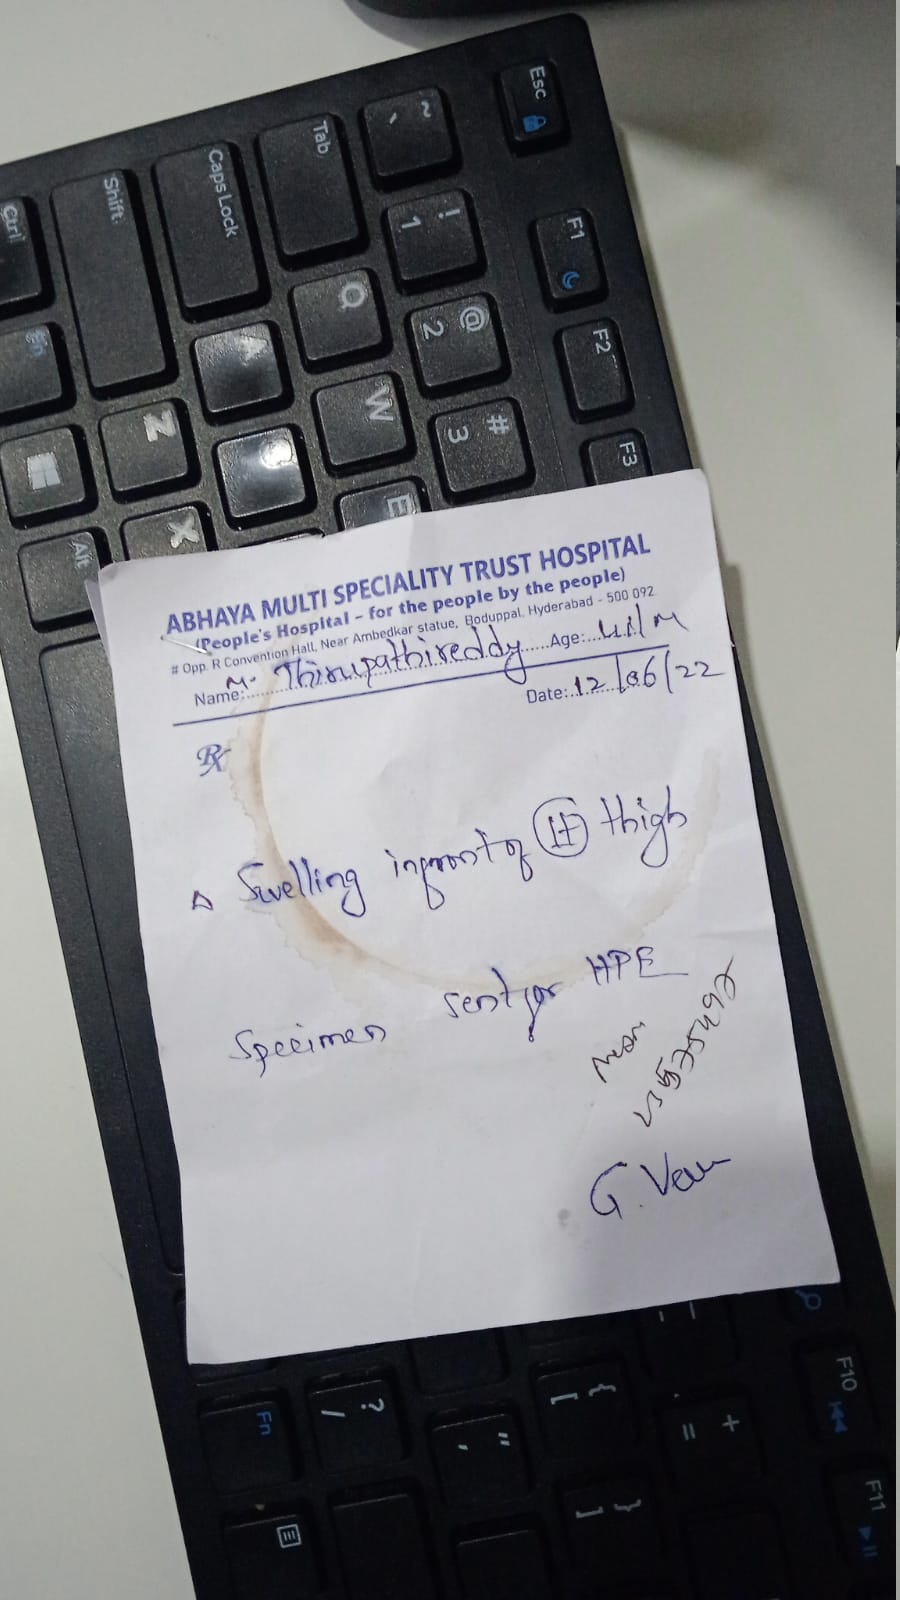 ABHAYA MULTI SPECIALITY TRUST HOSPITAL
(People's Hospital – for the people by the people)
# Opp. R Convention Hall, Near Ambedkar statue, Boduppal, Hyderabad - 500 092.
Name:..M. Thirupathireddy......Age:...41/M
Date:..12/06/22
Rx
Δ Swelling infront of Lt thigh
Specimen sent for HPE
G. Ven
Esc
~ `
Tab
Caps Lock
Shift
Ctrl
! 1
F1
Q
A
Fn
@ 2
F2
W
Z
# 3
F3
E
X
Alt
Fn
? /
" '
{ [
+ =
F10
} ]
F11